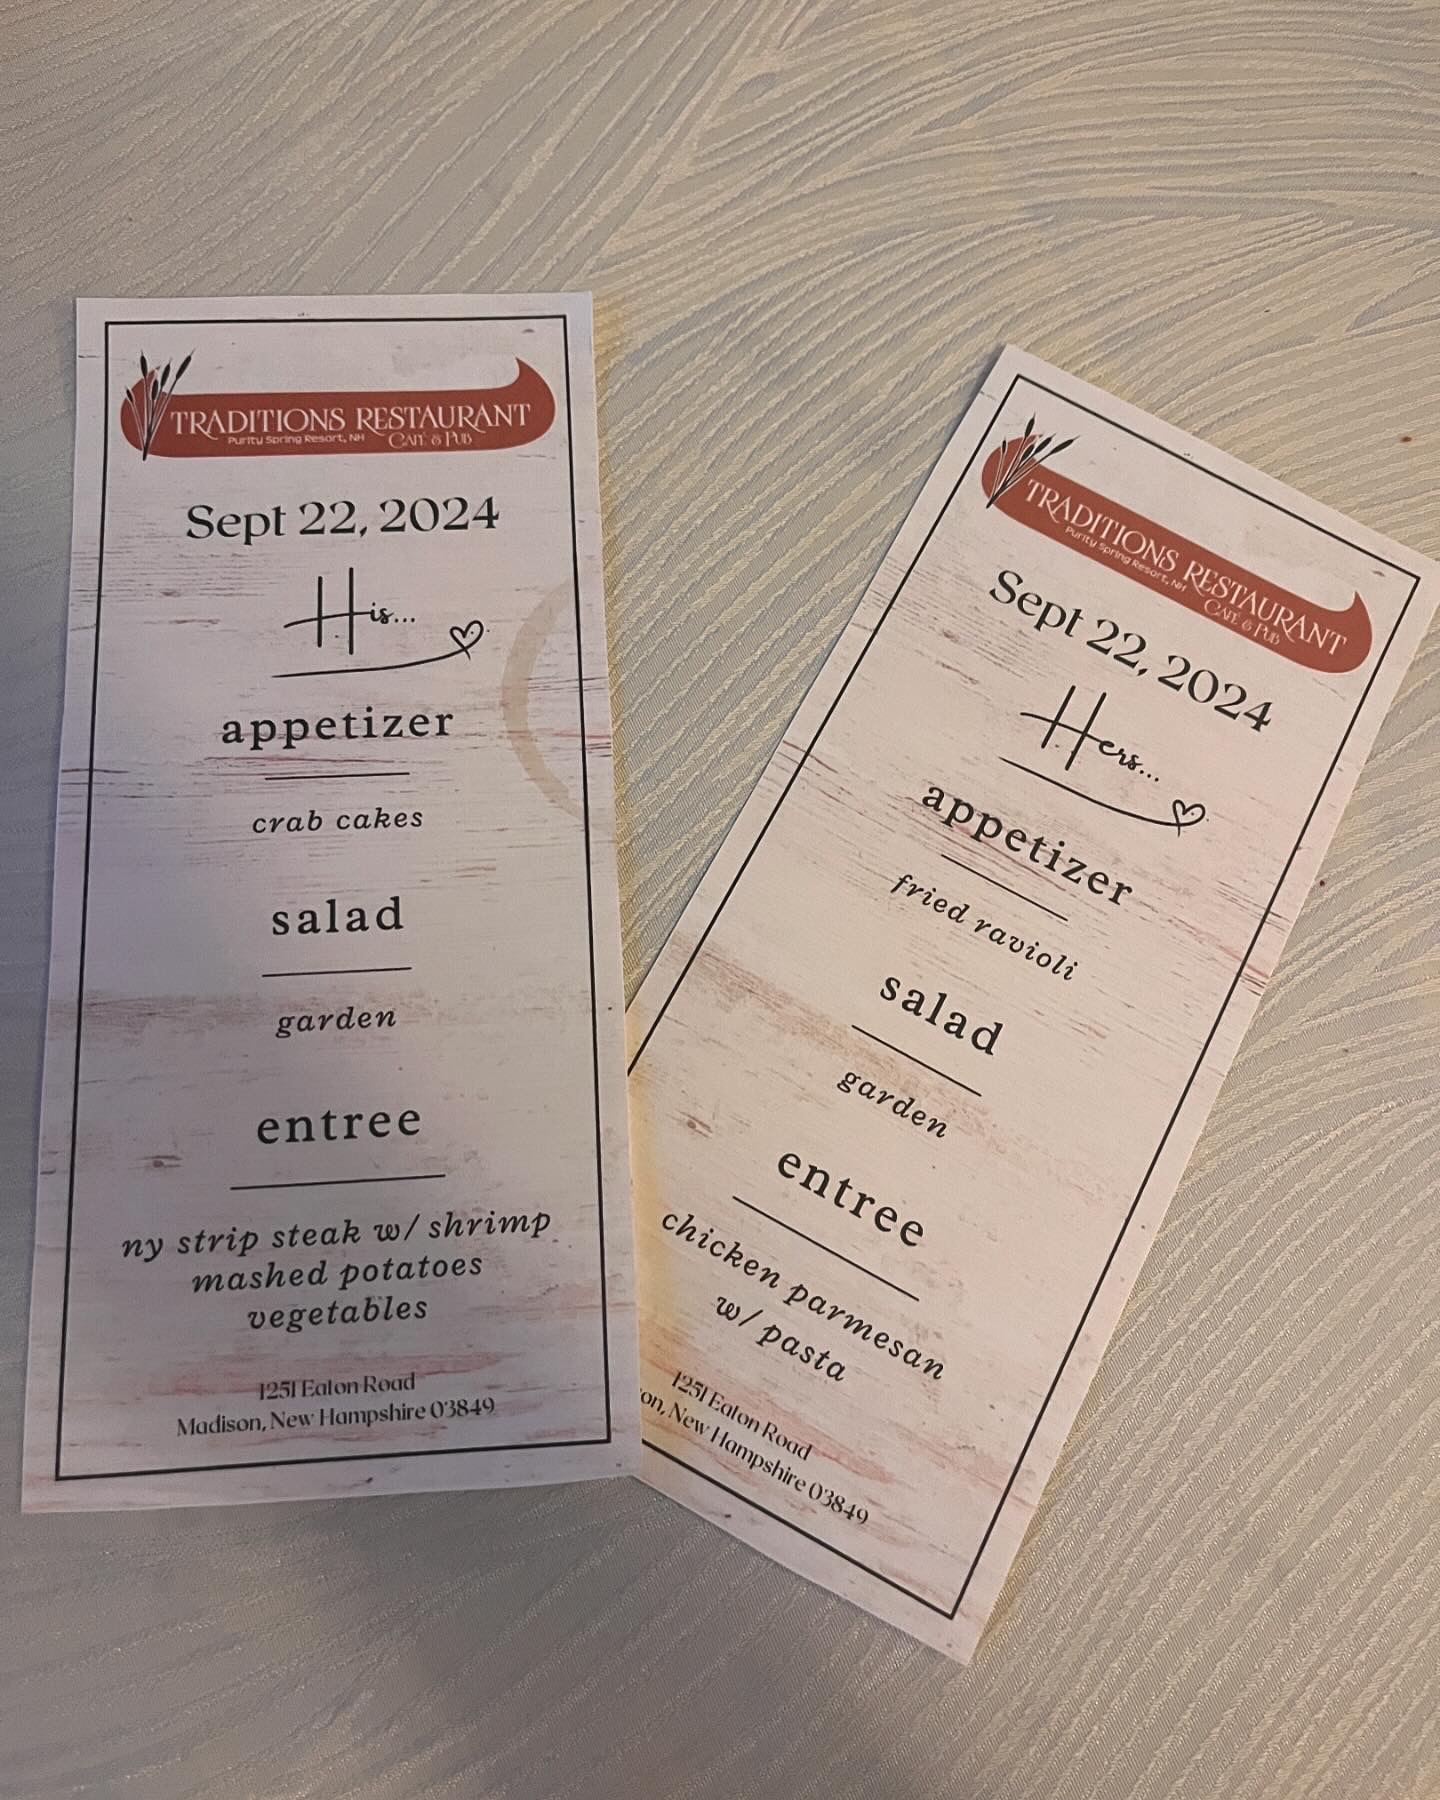 TRADITIONS RESTAURANT
Purity Spring Resort, NH CAFÉ & PUB
Sept 22, 2024
His...
appetizer
crab cakes
salad
garden
entree
ny strip steak w/ shrimp
mashed potatoes
vegetables
1251 Eaton Road
Madison, New Hampshire 03849
TRADITIONS RESTAURANT
Purity Spring Resort, NH CAFÉ & PUB
Sept 22, 2024
Hers...
appetizer
fried ravioli
salad
garden
entree
chicken parmesan
w/ pasta
1251 Eaton Road
on, New Hampshire 03849